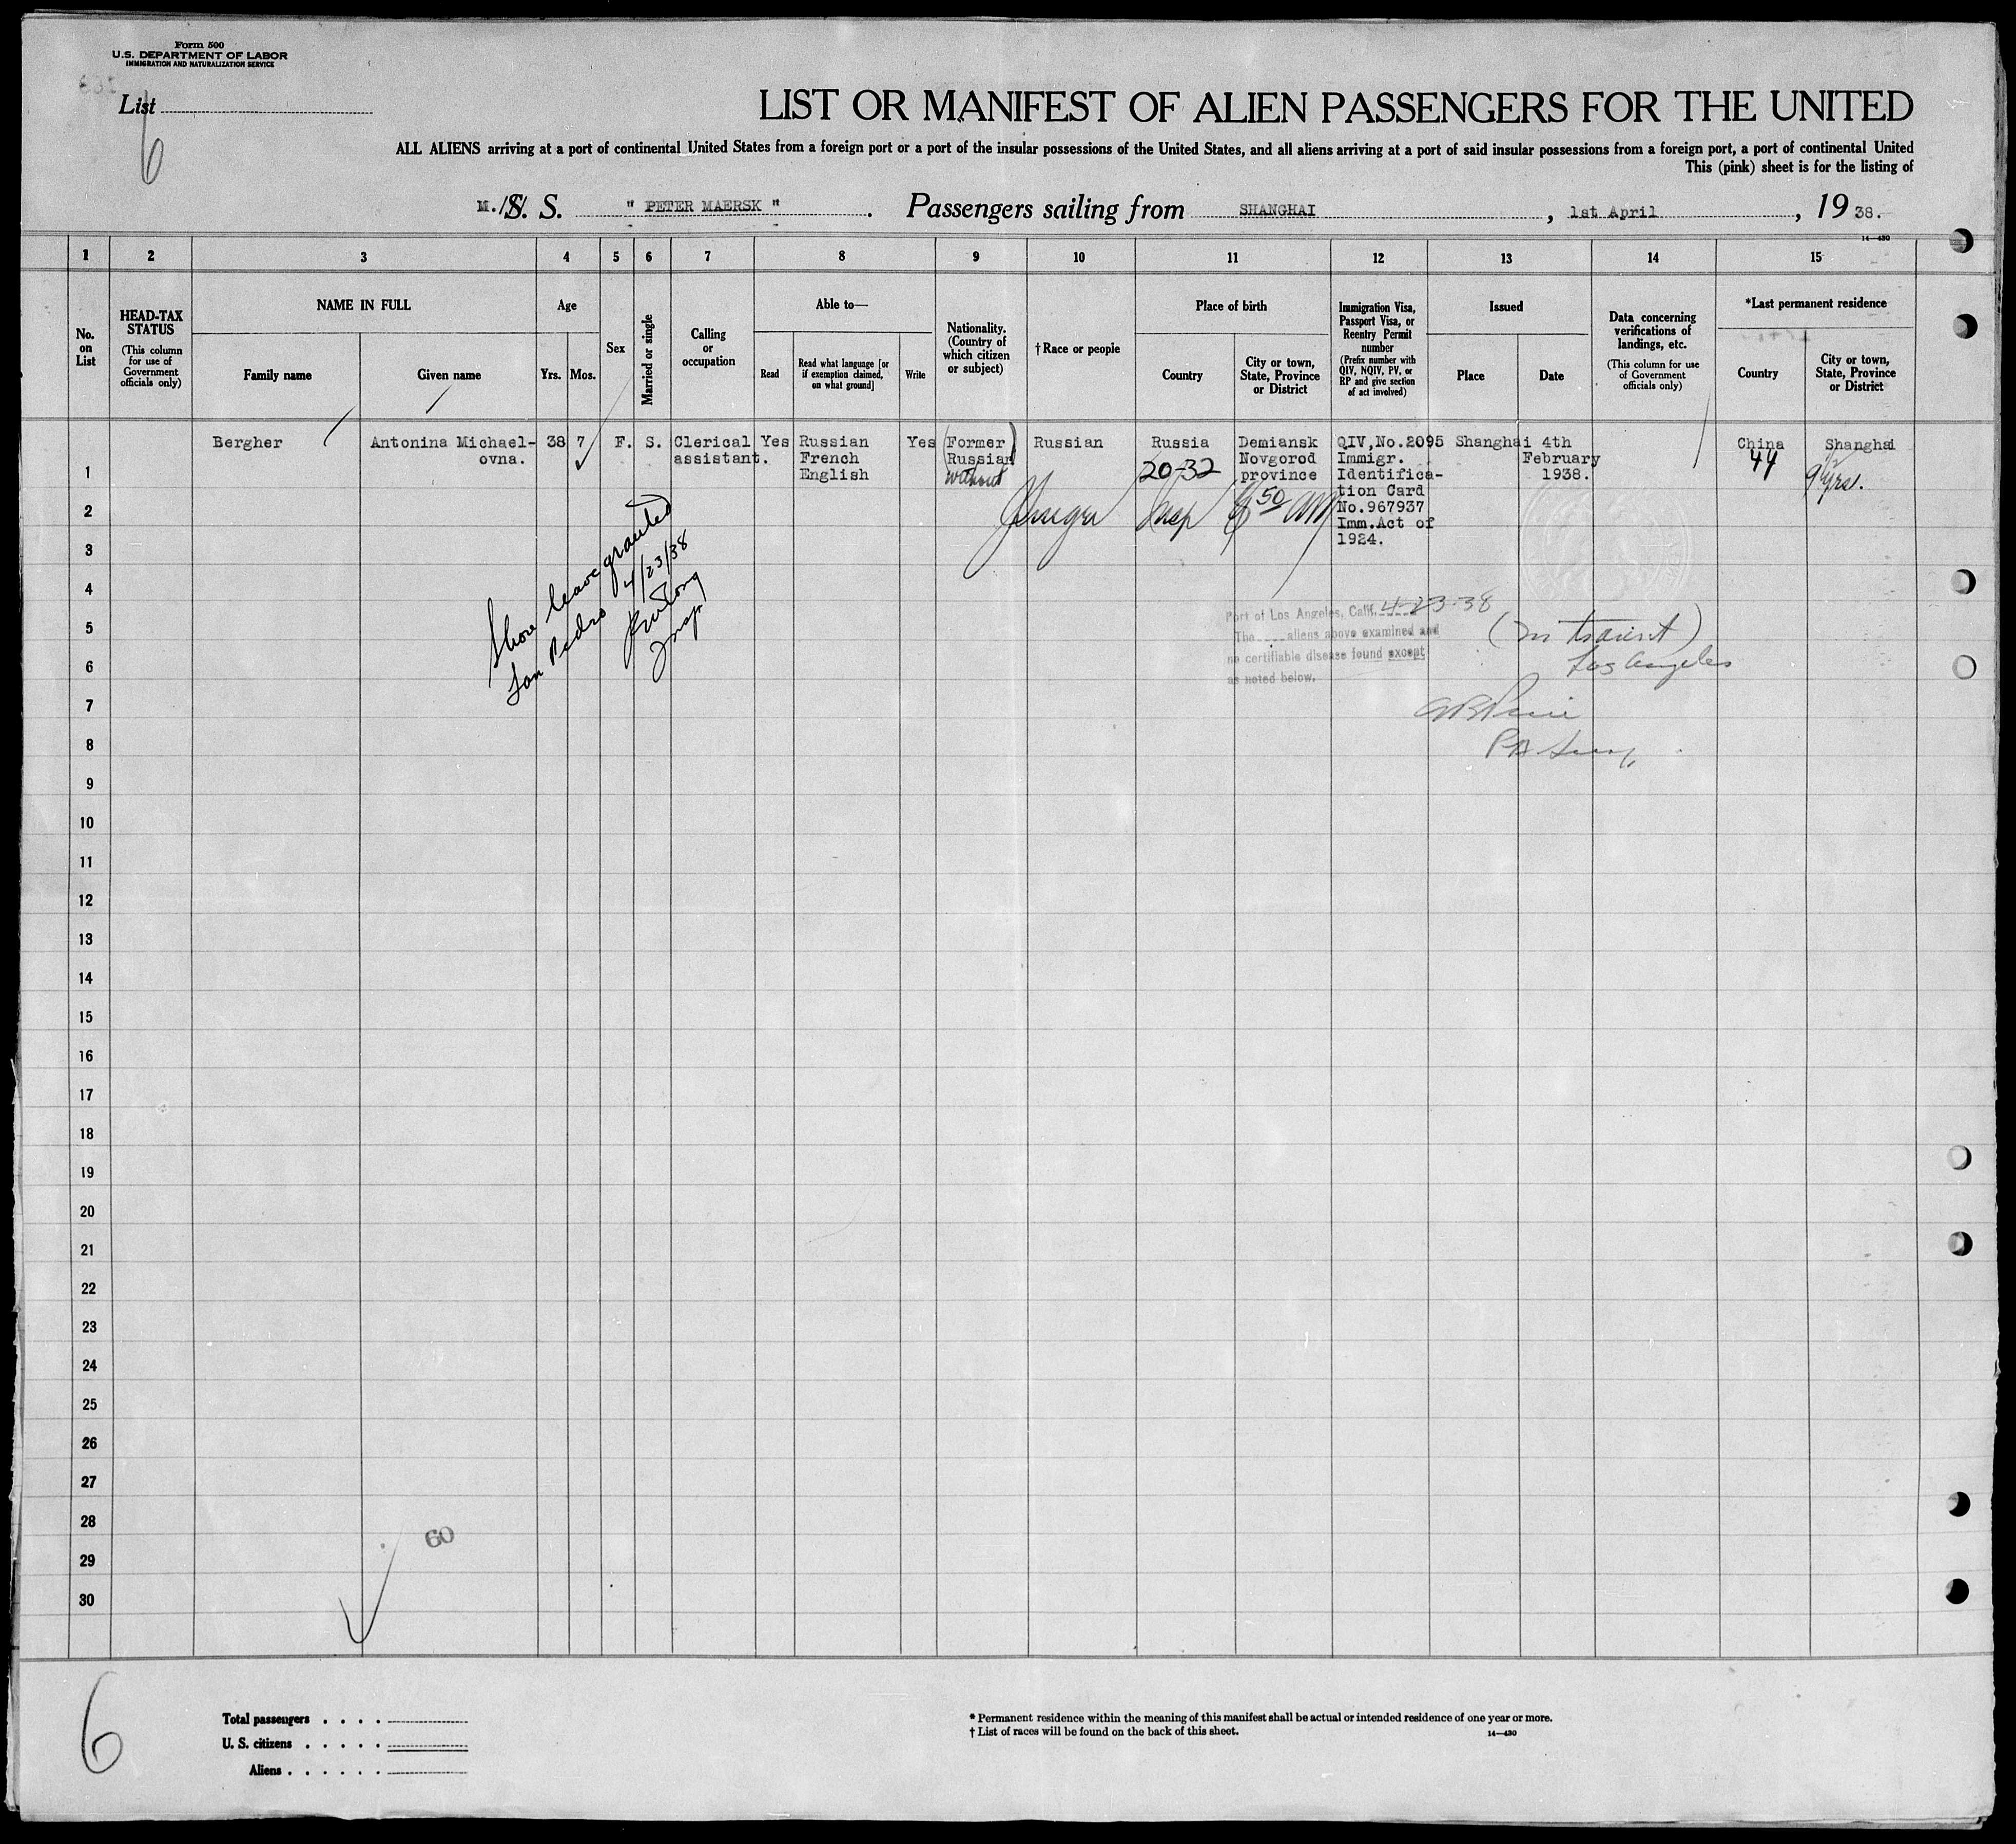 Form 500
U.S. DEPARTMENT OF LABOR
IMMIGRATION AND NATURALIZATION SERVICE
List
6
LIST OR MANIFEST OF ALIEN PASSENGERS FOR THE UNITED
ALL ALIENS arriving at a port of continental United States from a foreign port or a port of the insular possessions of the United States, and all aliens arriving at a port of said insular possessions from a foreign port, a port of continental United
This (pink) sheet is for the listing of
M. S. S. " PETER MAERSK " . Passengers sailing from SHANGHAI , 1st April , 19 38.
14—430
1 2 3 4 5 6 7 8 9 10 11 12 13 14 15
No. on List
HEAD-TAX STATUS
(This column for use of Government officials only)
NAME IN FULL
Family name
Given name
Age
Yrs.
Mos.
Sex
Married or single
Calling or occupation
Able to—
Read
Read what language [or if exemption claimed, on what ground]
Write
Nationality. (Country of which citizen or subject)
†Race or people
Place of birth
Country
City or town, State, Province or District
Immigration Visa, Passport Visa, or Reentry Permit number
(Prefix number with QIV, NQIV, PV, or RP and give section of act involved)
Issued
Place
Date
Data concerning verifications of landings, etc.
(This column for use of Government officials only)
*Last permanent residence
Country
City or town, State, Province or District
Bergher Antonina Michael- 38 7 F. S. Clerical Yes Russian Yes (Former) Russian Russia Demiansk QIV,No.2095 Shanghai 4th China Shanghai
ovna. assistant. French Russian Novgorod Immigr. February 44
1 English without 20-32 province Identifica- 1938. 9 yrs.
tion Card
2 Insp 50 AM No.967937
Imm.Act of
3 1924.
Shore leave granted
San Pedro 4/23/38
Insp
4
Port of Los Angeles, Calif. 4-23-38
5 The aliens above examined and (In transit)
6 no certifiable disease found except Los Angeles
as noted below.
7
8
9
10
11
12
13
14
15
16
17
18
19
20
21
22
23
24
25
26
27
28
60
29
30
6
Total passengers . . . .
U. S. citizens . . . . .
Aliens . . . . . .
* Permanent residence within the meaning of this manifest shall be actual or intended residence of one year or more.
† List of races will be found on the back of this sheet. 14—430